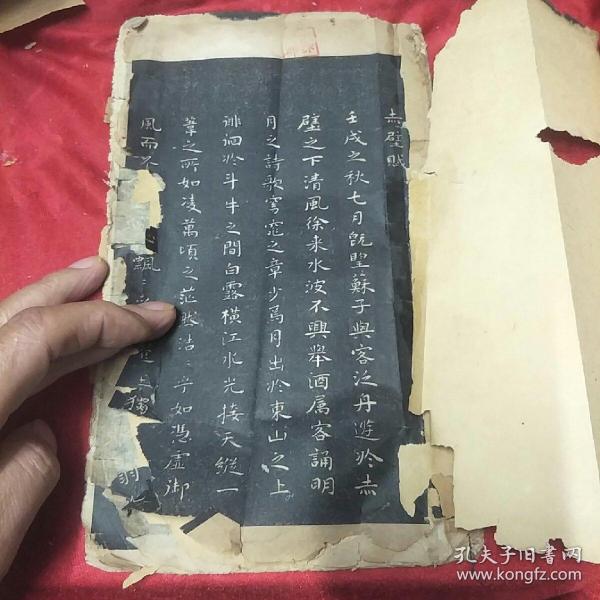 赤壁賦
壬戌之秋七月既望蘇子與客泛舟遊於赤
壁之下清風徐来水波不興舉酒属客誦明
月之詩歌窈窕之章少焉月出於東山之上
徘徊於斗牛之間白露横江水光接天縱一
葦之所如凌萬頃之茫然浩〻乎如憑虚御
風而不
飄〻
獨
羽化
孔夫子旧書网
www.kongfz.com